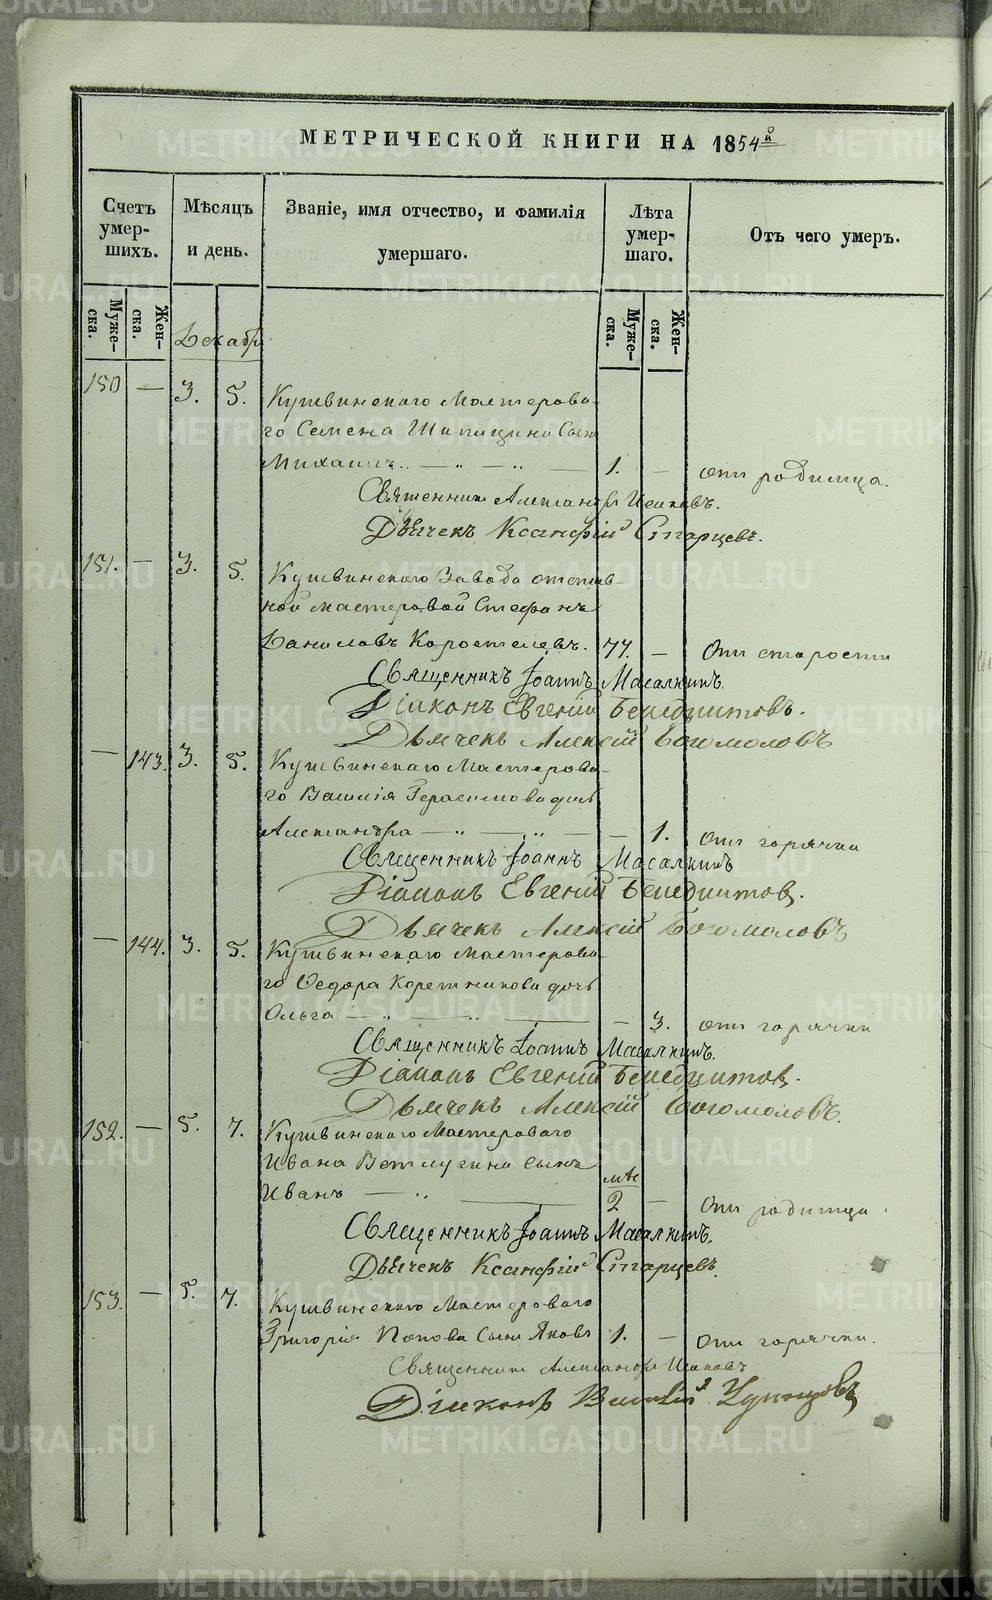 МЕТРИЧЕСКОЙ КНИГИ НА 1854й
Счетъ умер-шихъ.
Мѣсяцъ и день.
Званіе, имя отчество, и фамилія умершаго.
Лѣта умер-шаго.
Отъ чего умеръ.
Муже-ска.
Жен-ска.
Муже-ска.
Жен-ска.
Декабрь
150 — 3. 5. Кушвинскаго Мастерова-
го Семена Шипицина Сынъ
Михаилъ 1. — отъ родимца.
Священникъ Александръ
Дьячекъ Ксанфій Старцевъ.
151. — 3. 5. Кушвинскаго Завода отстав-
ной мастеровой Стефанъ
Даниловъ Коростелевъ. 77. — Отъ старости
Священникъ Іоаннъ Масалкинъ.
Діаконъ Евгеній Бенедиктовъ.
Дьячекъ Алексій Богомоловъ
— 143. 3. 5. Кушвинскаго Мастерова-
го Василія Герасимова дочь
Александра — 1. отъ горячки
Священникъ Іоаннъ Масалкинъ
Діаконъ Евгеній Бенедиктов.
Дьячекъ Алексій Богомоловъ
— 144. 3. 5. Кушвинскаго Мастерова-
го Ѳедора Корешникова дочь
Ольга — 3. отъ горячки
Священникъ Іоаннъ Масалкинъ.
Діаконъ Евгеній Бенедиктов.
Дьячекъ Алексій Богомоловъ.
152. — 5. 7. Кушвинскаго Мастероваго
Ивана Ветлугина сынъ
мѣс
Иванъ 2 — Отъ родимца.
Священникъ Іоаннъ Масалкинъ.
Дьячекъ Ксанфій Старцевъ
153. — 5. 7. Кушвинскаго Мастероваго
Григорія Попова Сынъ Яковъ 1. — отъ горячки.
Священникъ Александръ
Діаконъ Василій